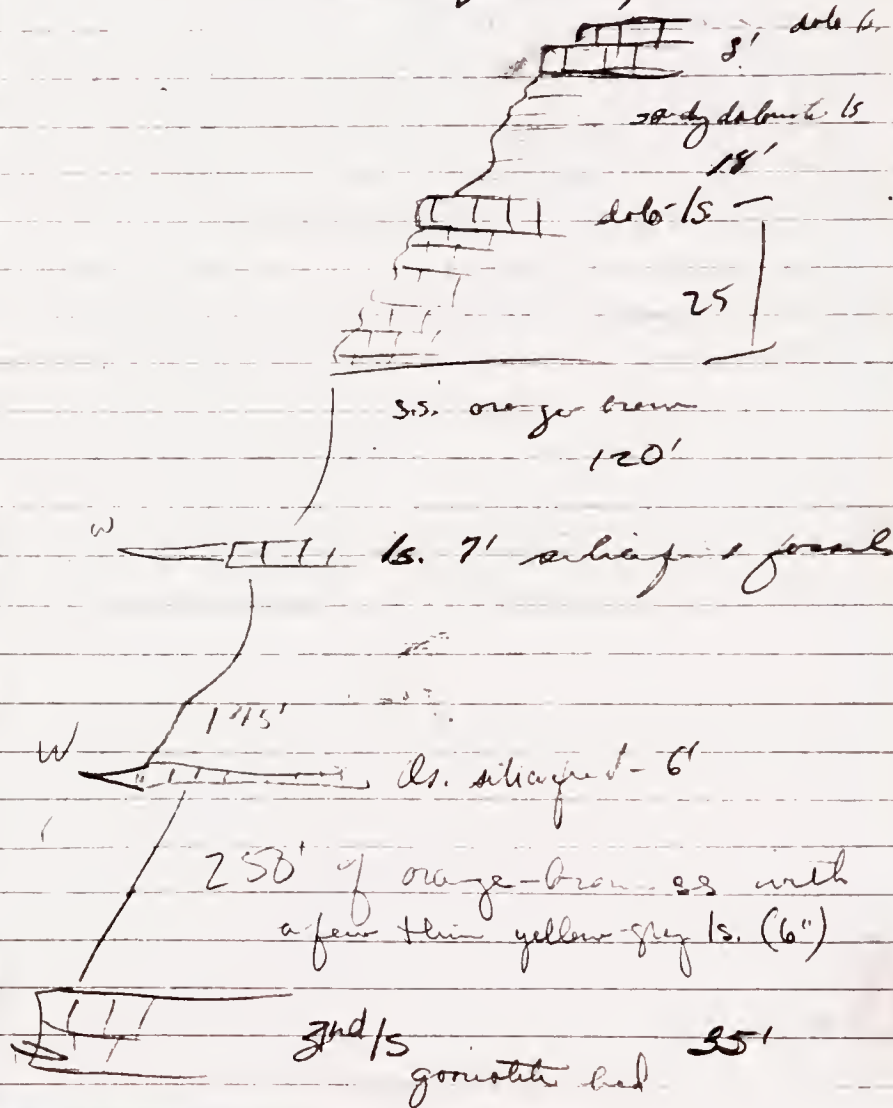 8' dolo ls.
sandy dolomitic ls
18'
dolo ls.
25
s.s. orange brown
120'
W
ls. 7' silicified fossils
145'
W
ls. silicified - 6'
250' of orange-brown ss with
a few thin yellow-grey ls. (6")
2nd ls 35'
goniatite bed